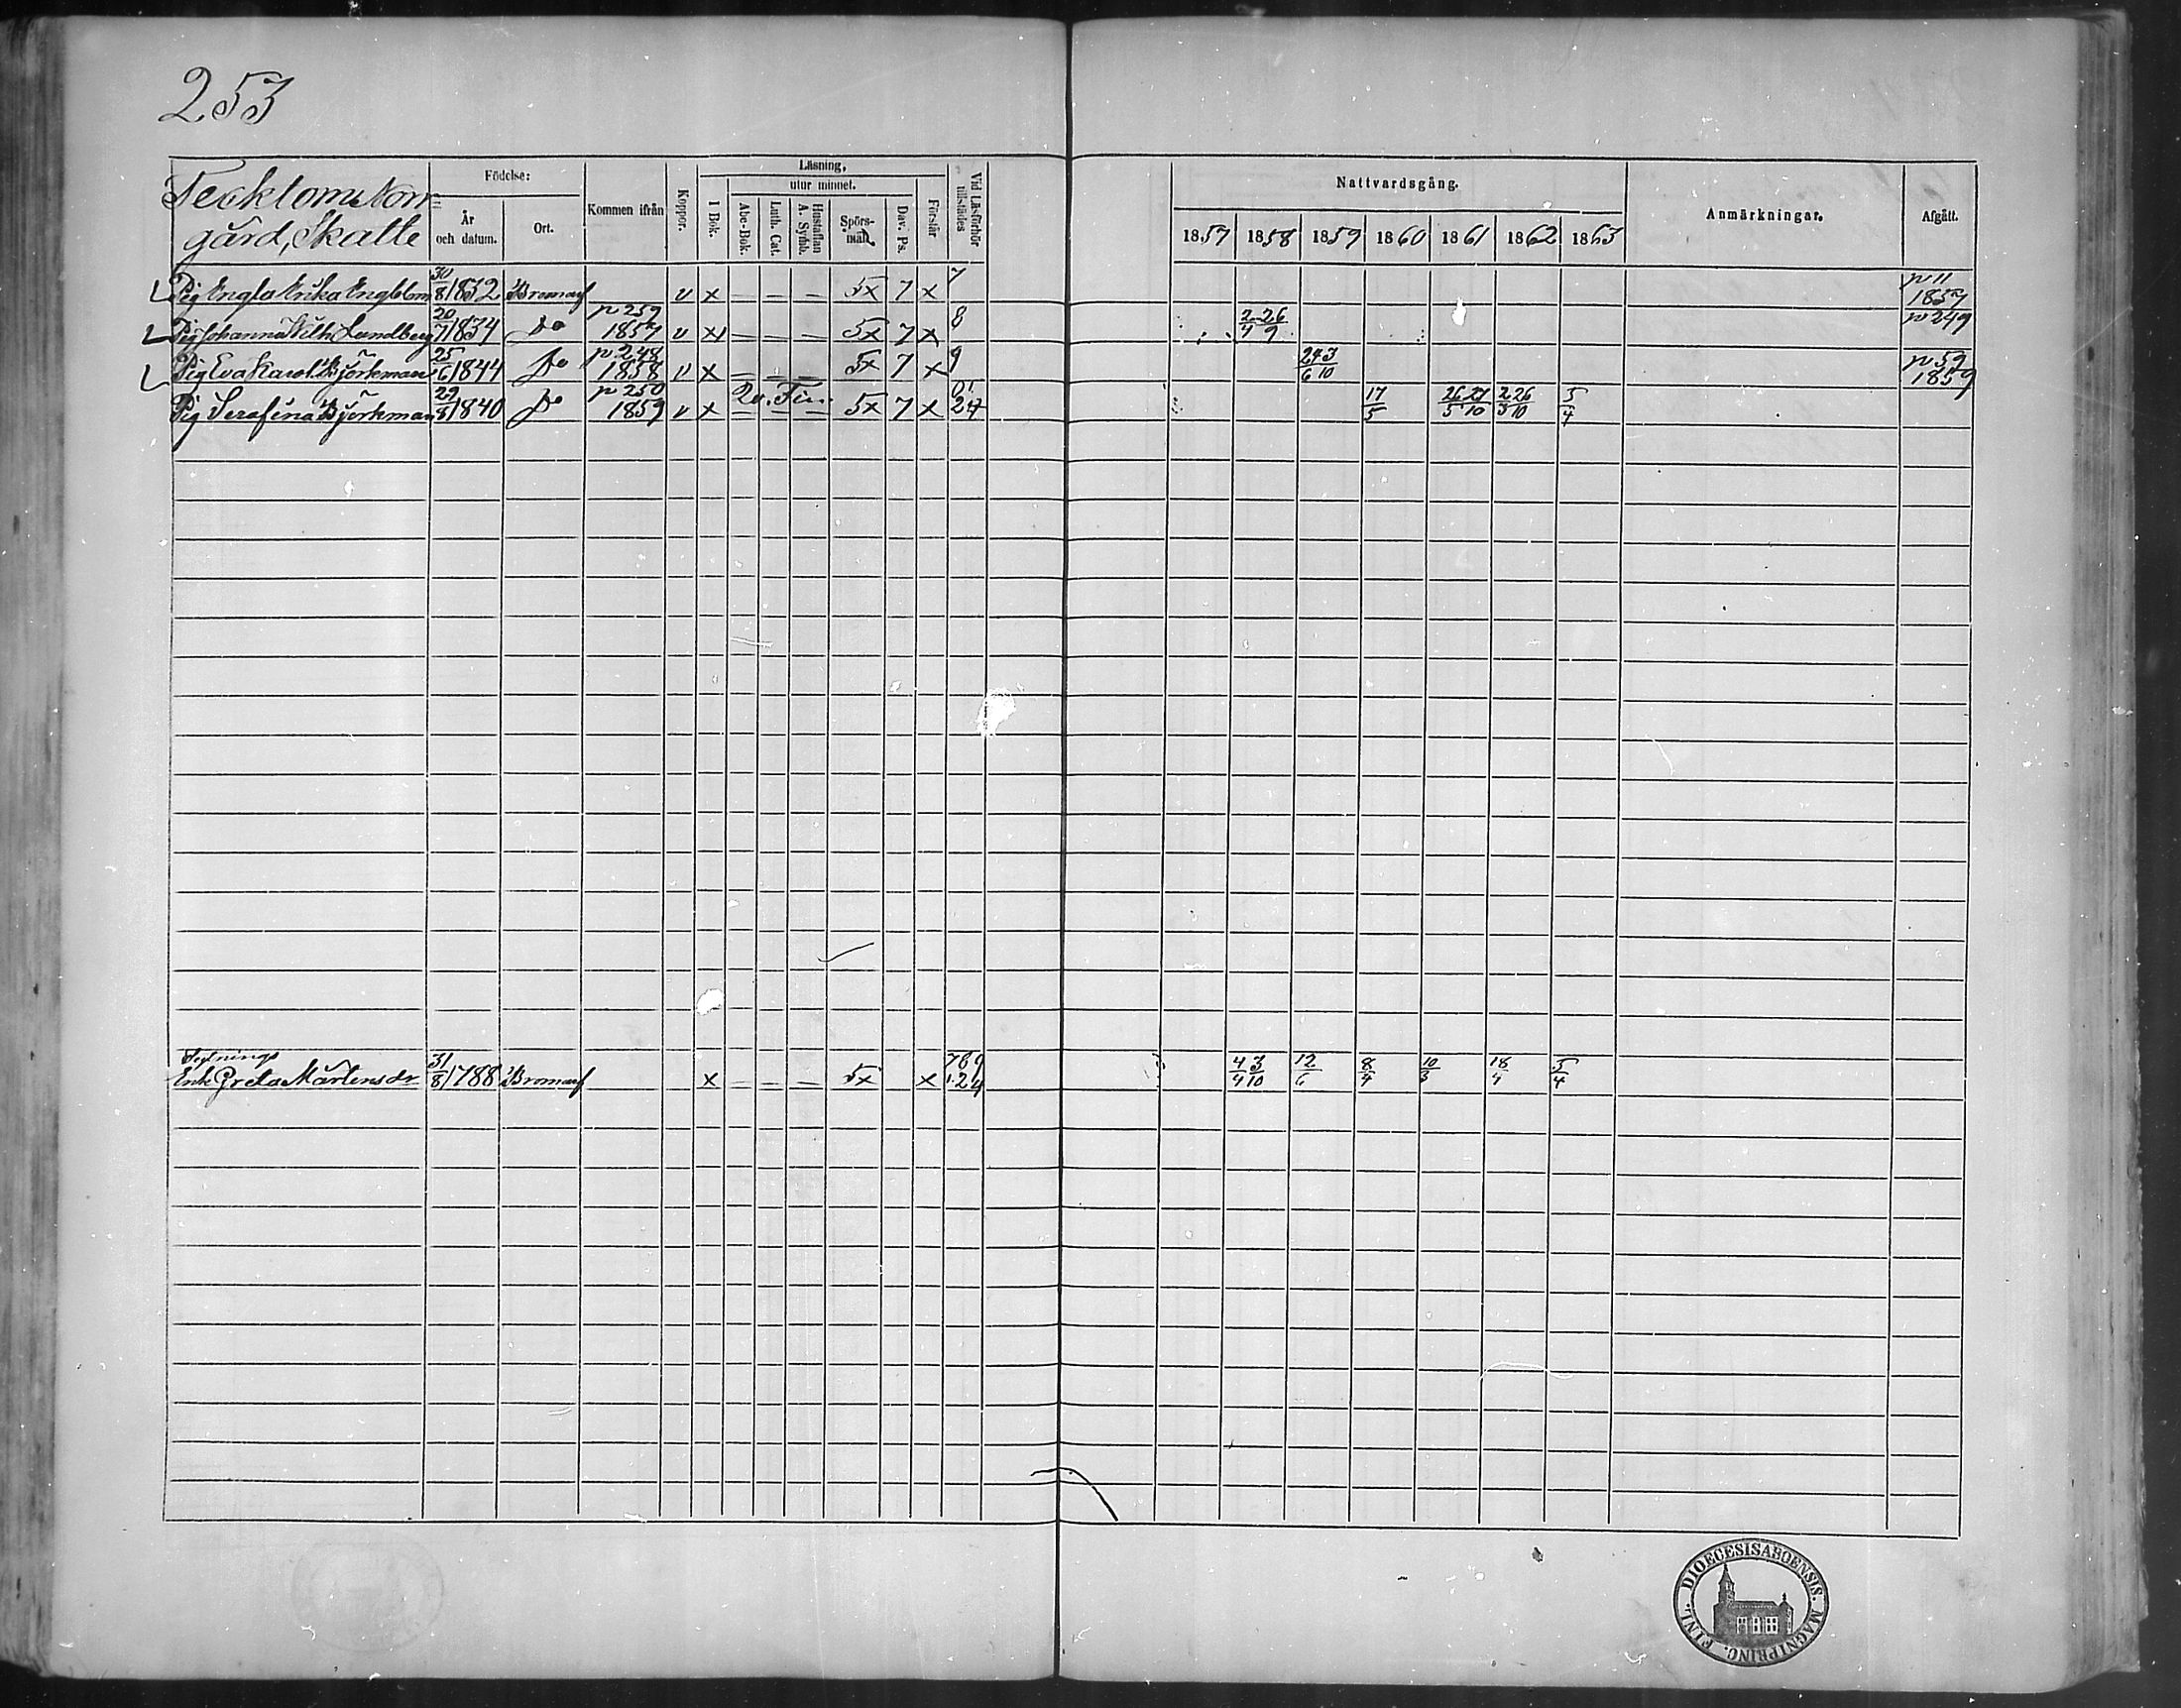 253
Födelse:
Läsning,
utur minnet.
År och datum.
Ort.
Kommen ifrån
Koppor.
I Bok.
Abc-Bok.
Luth. Cat.
Hustaflan A. Symb.
Spörsmål
Dav. Ps.
Förstår
Vid Läsförhör tillstädes
Nattvardsgång.
1857 1858 1859 1860 1861 1862 1863
Anmärkningar.
Afgått.
gård, Skatte
Pig Engla Erika Engblom 30/8 1832 Bromarf v x — — — 5x 7 x 7 p 11 1857
Pig Johanna Wilh. Lundberg 20/7 1834 Do p 259 1857 v x — — — 5x 7 x 8 2/4 26/9 p 249
Pig Eva Karol. Björkman 25/6 1844 Do p 248 1858 v x — — — 5x 7 x 9 p 59 1859
Pig Serafina Björkman 29/5 1840 Do p 250 1859 v x — — — 5x 7 x 17/5 26/5 27/10 5/4
Enk Greta Mårtensdr 31/8 1788 Bromarf x — — — 5x x 789 1.24 4/4 3/10 12/6 8/4 10/3 18/4 5/4
DIOECESIS ABOENSIS. MAGNI PRINC. FINL.